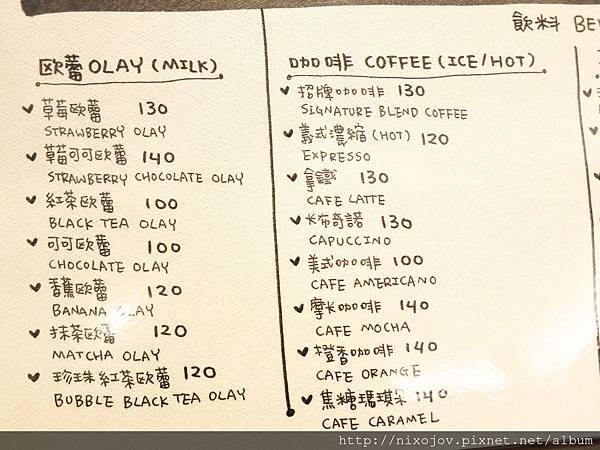 飲料 BE
歐蕾 OLAY (MILK)
草莓歐蕾 130
STRAWBERRY OLAY
草莓可可歐蕾 140
STRAWBERRY CHOCOLATE OLAY
紅茶歐蕾 100
BLACK TEA OLAY
可可歐蕾 100
CHOCOLATE OLAY
香蕉歐蕾 120
BANANA OLAY
抹茶歐蕾 120
MATCHA OLAY
珍珠紅茶歐蕾 120
BUBBLE BLACK TEA OLAY
咖啡 COFFEE (ICE/HOT)
招牌咖啡 130
SIGNATURE BLEND COFFEE
義式濃縮 (HOT) 120
EXPRESSO
拿鐵 130
CAFE LATTE
卡布奇諾 130
CAPUCCINO
美式咖啡 100
CAFE AMERICANO
摩卡咖啡 140
CAFE MOCHA
橙香咖啡 140
CAFE ORANGE
焦糖瑪琪朵 140
CAFE CARAMEL
http://nixojov.pixnet.net/album